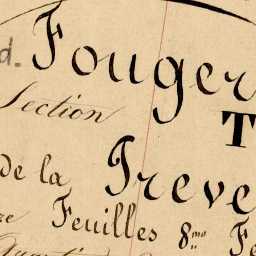 d. Fouger
Section
T
de la Treve
re Feuilles 8me Fe